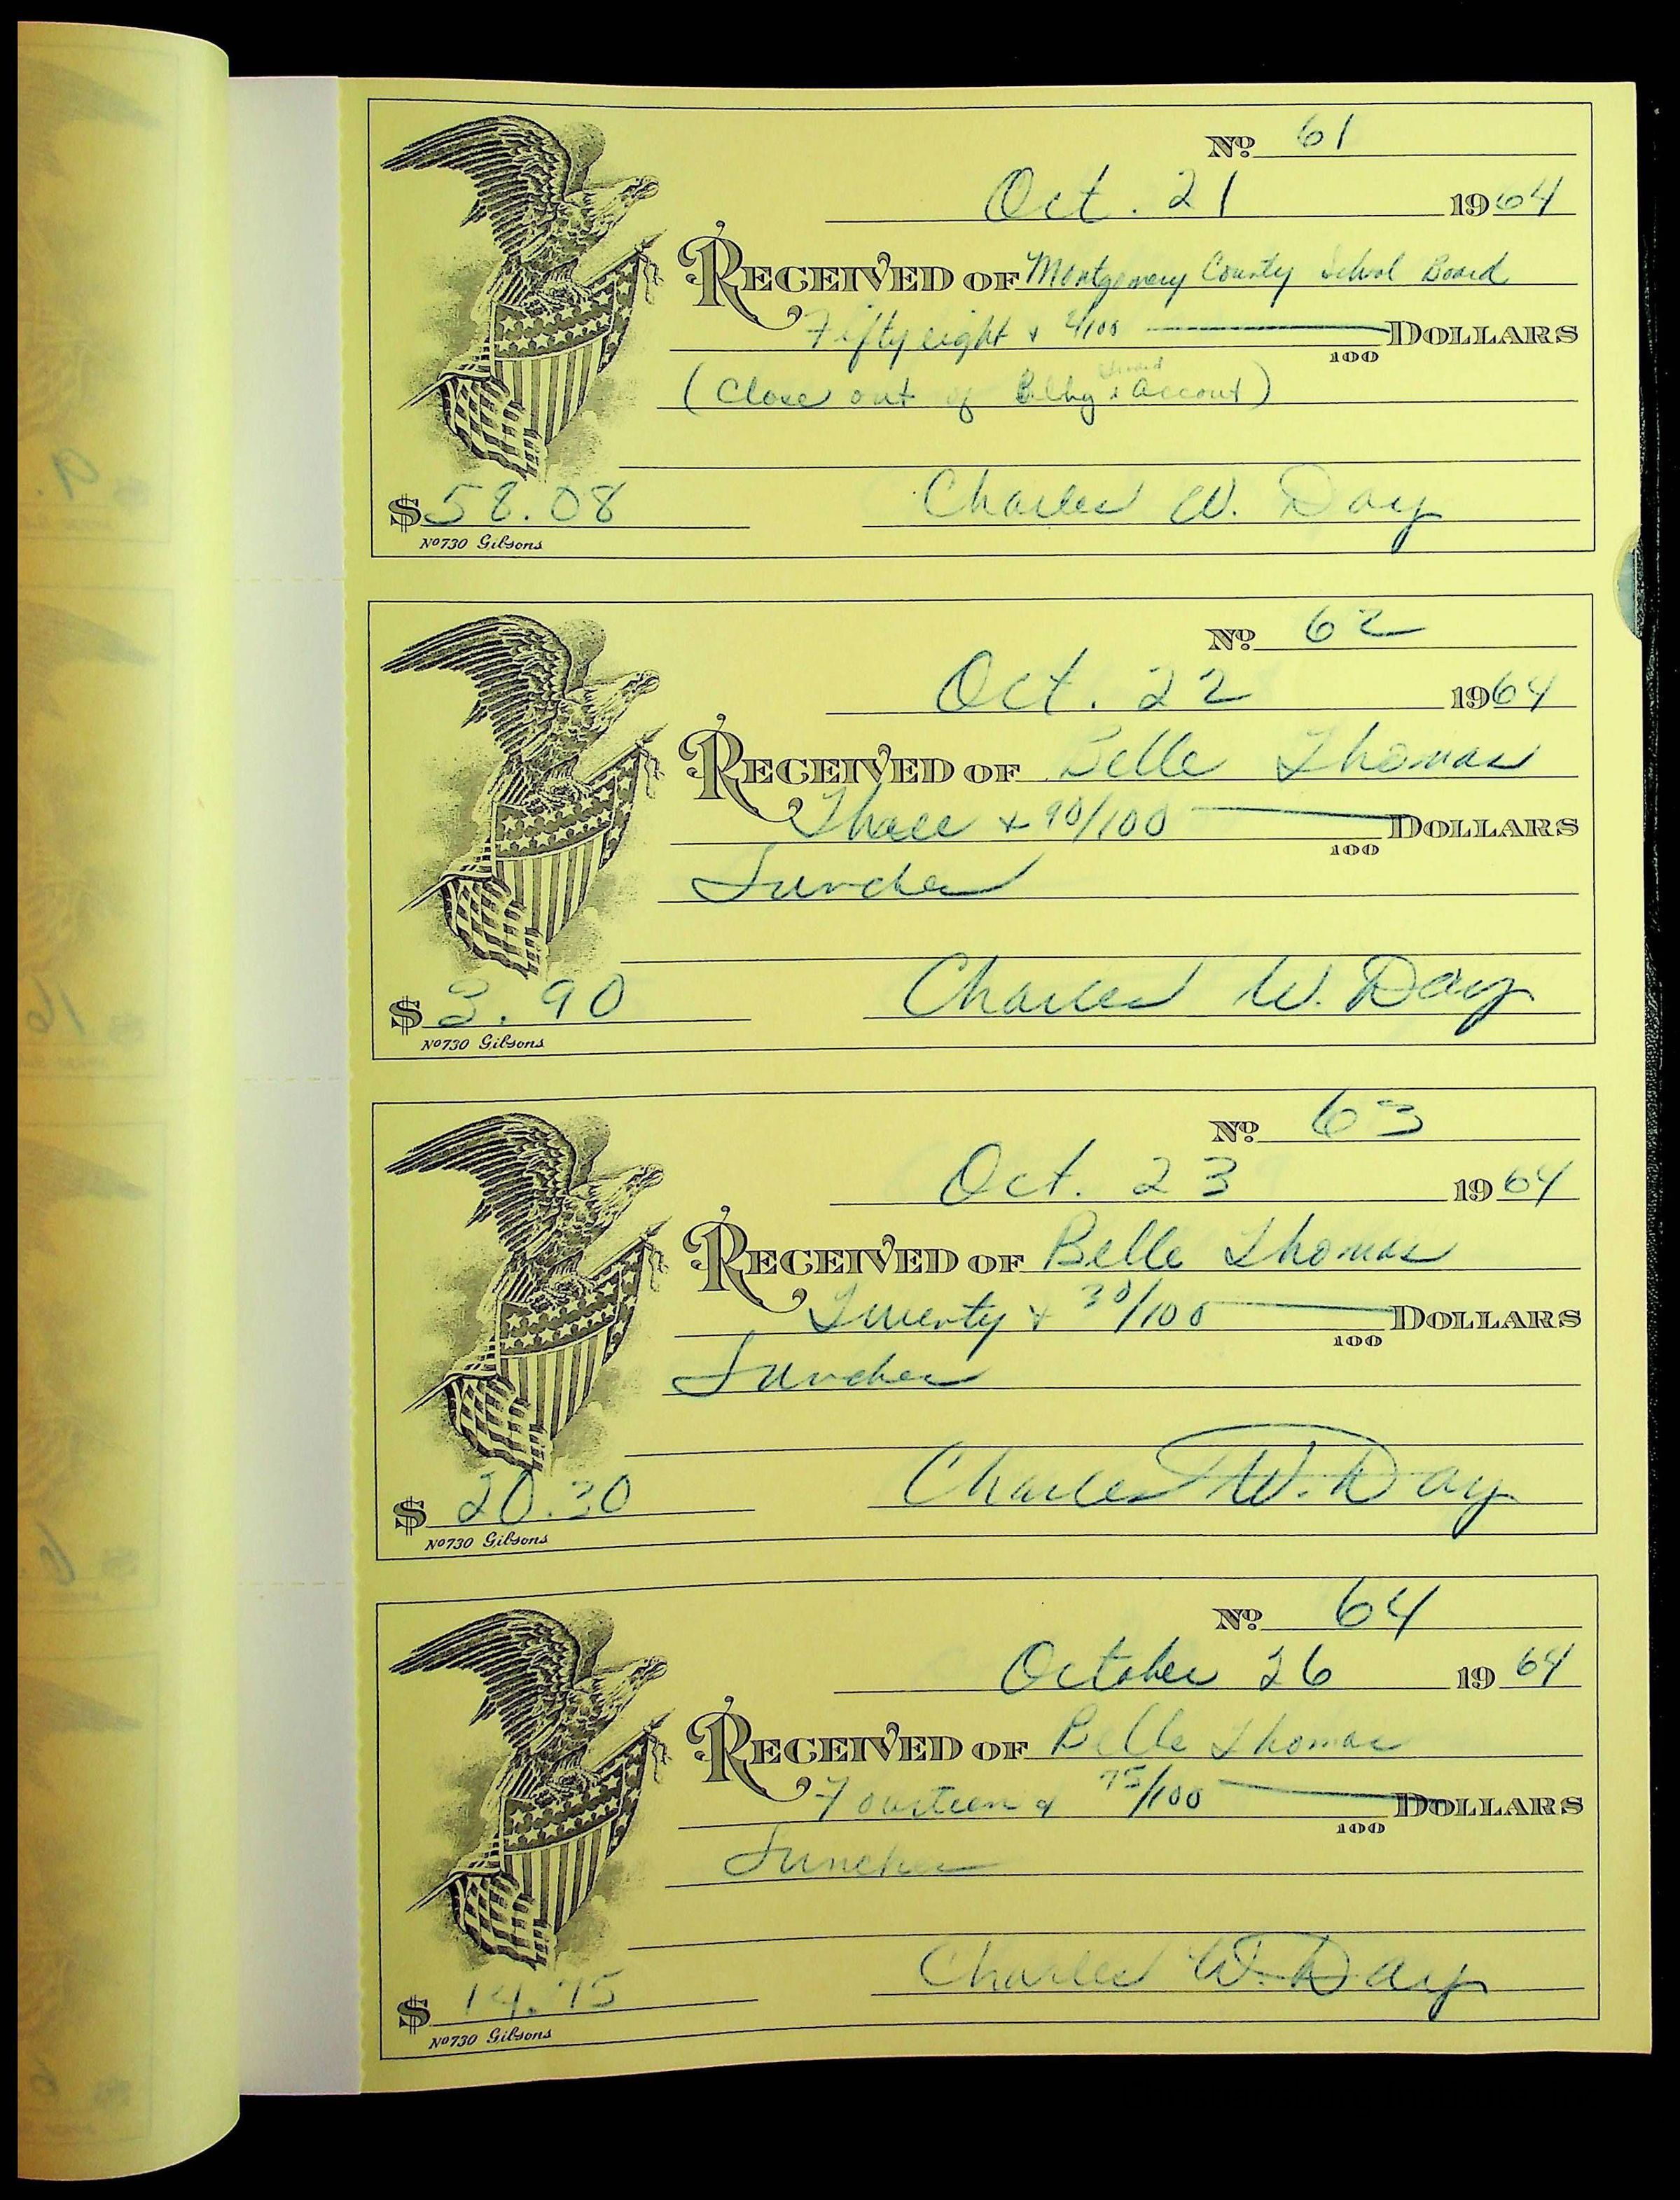 No. 61
Oct. 21 1964
RECEIVED OF Montgomery County School Board
Fifty eight & /100 DOLLARS
100
School
(Close out of Bilby's Account)
$ 58.08 Charles W. Day
No 730 Gibsons
No. 62
Oct. 22 1964
RECEIVED OF Belle Thomas
Three & 90/100 DOLLARS
100
Lunches
$ 3.90 Charles W. Day
No 730 Gibsons
No. 63
Oct. 23 1964
RECEIVED OF Belle Thomas
Twenty & 30/100 DOLLARS
100
Lunches
$ 20.30 Charles W. Day
No 730 Gibsons
No. 64
October 26 1964
RECEIVED OF Belle Thomas
Fourteen & 75/100 DOLLARS
100
Lunches
$ 14.75 Charles W. Day
No 730 Gibsons